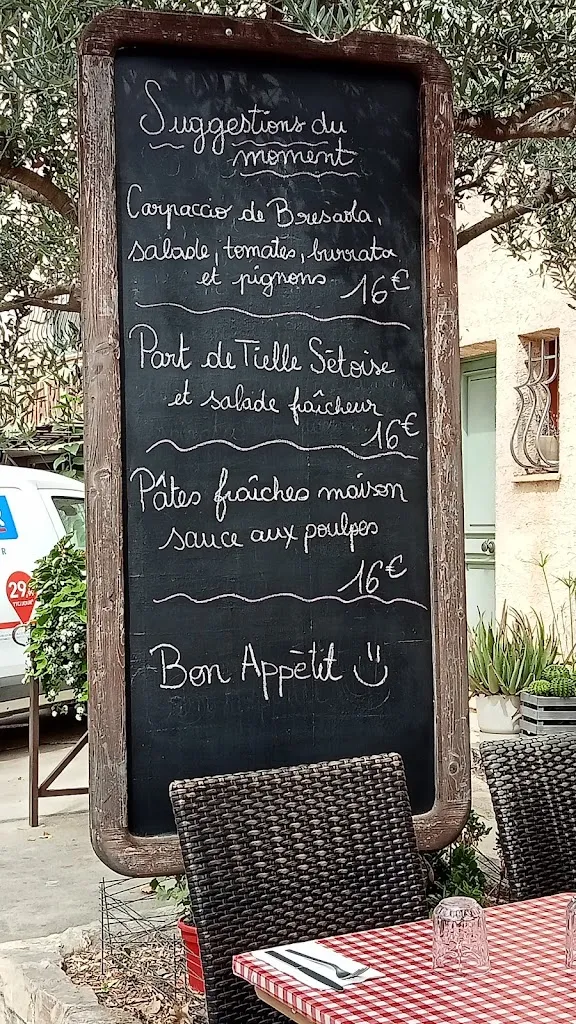 Suggestions du
moment
Carpaccio de Bresaola,
salade, tomates, burrata
et pignons 16€
Part de Tielle Sètoise
et salade fraîcheur
16€
Pâtes fraîches maison
sauce aux poulpes
16€
Bon Appétit
29